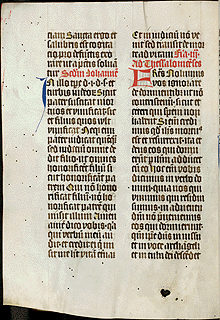 niam sancta ergo et
salubris est cogita
tio pro defunctis ex
orare ut a pctis solvan
tur Secdm Johannem
In illo tpe d i d s et
turbis iudeor Sicut
pater suscitat mor
tuos et vivificat sic
et filius quos vult
vivificat Neqz enim
pater iudicat quēqz
sed iudiciū omne de
dit filio ut omnes
honorificent filiū
sicut honorificāt pa
trem Qui non hono
rificat filiū nō ho
norificat patrē qui
misit illum Amen
amen dico vobis qa
qui verbū meū au
dit et credit ei qui
misit me
Et in iudiciū nō ve
nit sed transiit de mor
te ad vitam
Ad Thessalonicēses
Fratres Nolumus
vos ignorare
de dormientibus ut nō
contristemini sicut et
ceteri qui spem nō ha
bent Si enim credi
mus qd ihs mortuus
est et resurrexit ita et
deus eos qui dormie
runt per ihesum adducet
cum eo Hoc enim vobis
dicimus in verbo do
mini quia nos qui
vivimus qui residui
sumus in adventu
dni nō preveniemus
eos qui dormierunt
ipse dns in iussu
et in voce archāgeli
et in tuba dei descēdet